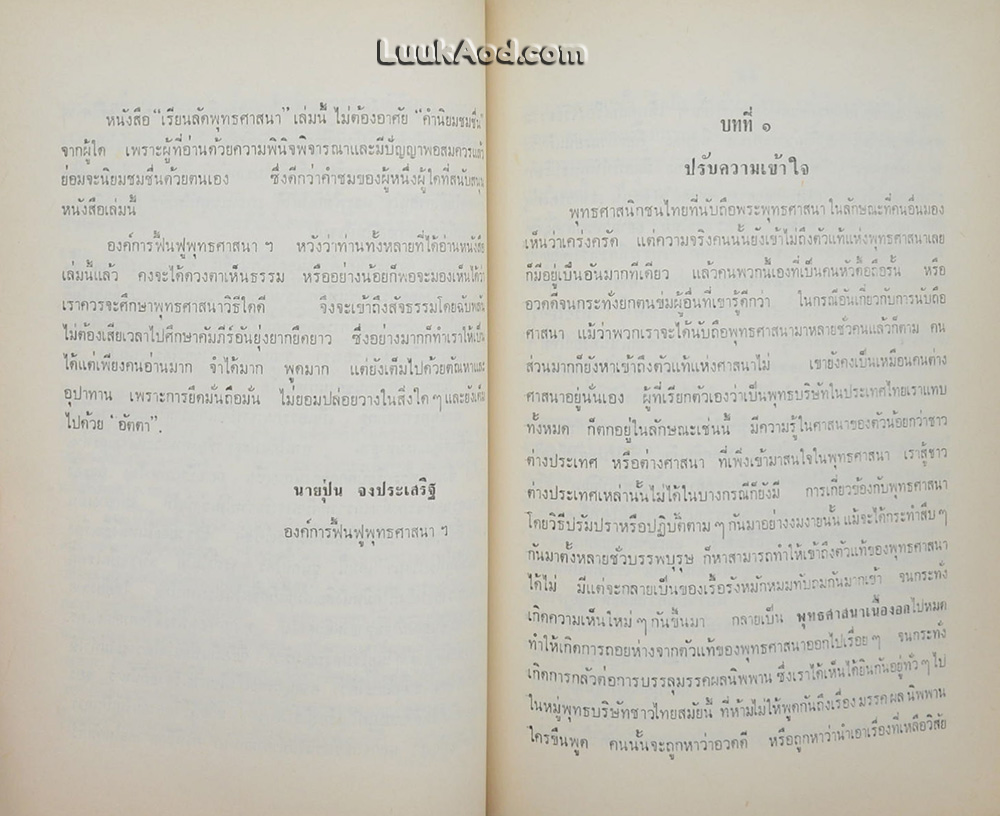 LuukAod.com
หนังสือ “เรียนลัดพุทธศาสนา” เล่มนี้ ไม่ต้องอาศัย “คำนิยมชมชื่น”
จากผู้ใด เพราะผู้ที่อ่านด้วยความพินิจพิจารณาและมีปัญญาพอสมควรแล้ว
ย่อมจะนิยมชมชื่นด้วยตนเอง ซึ่งดีกว่าคำชมของผู้หนึ่งผู้ใดที่สนับสนุน
หนังสือเล่มนี้
องค์การฟื้นฟูพุทธศาสนา ฯ หวังว่าท่านทั้งหลายที่ได้อ่านหนังสือ
เล่มนี้แล้ว คงจะได้ดวงตาเห็นธรรม หรืออย่างน้อยก็พอจะมองเห็นได้ว่า
เราควรจะศึกษาพุทธศาสนาวิธีใดดี จึงจะเข้าถึงสัจธรรมโดยฉับพลัน
ไม่ต้องเสียเวลาไปศึกษาคัมภีร์อันยุ่งยากยืดยาว ซึ่งอย่างมากก็ทำเราให้เป็น
ได้แต่เพียงคนอ่านมาก จำได้มาก พูดมาก แต่ยังเต็มไปด้วยตัณหาและ
อุปาทาน เพราะการยึดมั่นถือมั่น ไม่ยอมปล่อยวางในสิ่งใด ๆ และยังเต็ม
ไปด้วย ‘อัตตา’”.
นายปุ่น จงประเสริฐ
องค์การฟื้นฟูพุทธศาสนา ฯ
บทที่ ๑
ปรับความเข้าใจ
พุทธศาสนิกชนไทยที่นับถือพระพุทธศาสนา ในลักษณะที่คนอื่นมอง
เห็นว่าเคร่งครัด แต่ความจริงคนนั้นยังเข้าไม่ถึงตัวแท้แห่งพุทธศาสนาเลย
ก็มีอยู่เป็นอันมากทีเดียว แล้วคนพวกนี้เองที่เป็นคนหัวดื้อถือรั้น หรือ
อวดดีจนกระทั่งยกตนข่มผู้อื่นที่เขารู้ดีกว่า ในกรณีอันเกี่ยวกับการนับถือ
ศาสนา แม้ว่าพวกเราจะได้นับถือพุทธศาสนามาหลายชั่วคนแล้วก็ตาม คน
ส่วนมากก็ยังหาเข้าถึงตัวแท้แห่งศาสนาไม่ เขายังคงเป็นเหมือนคนต่าง
ศาสนาอยู่นั่นเอง ผู้ที่เรียกตัวเองว่าเป็นพุทธบริษัทในประเทศไทยเราแทบ
ทั้งหมด ก็ตกอยู่ในลักษณะเช่นนี้ มีความรู้ในศาสนาของตัวน้อยกว่าชาว
ต่างประเทศ หรือต่างศาสนา ที่เพิ่งเข้ามาสนใจในพุทธศาสนา เราสู้ชาว
ต่างประเทศเหล่านั้นไม่ได้ในบางกรณีก็ยังมี การเกี่ยวข้องกับพุทธศาสนา
โดยวิธีปรัมปราหรือปฏิบัติตาม ๆ กันมาอย่างงมงายนั้น แม้จะได้กระทำสืบ ๆ
กันมาตั้งหลายชั่วบรรพบุรุษ ก็หาสามารถทำให้เข้าถึงตัวแท้ของพุทธศาสนา
ได้ไม่ มีแต่จะกลายเป็นของเรื้อรังหมักหมมทับถมกันมากเข้า จนกระทั่ง
เกิดความเห็นใหม่ ๆ กันขึ้นมา กลายเป็น พุทธศาสนาเนื้องอกไปหมด
ทำให้เกิดการถอยห่างจากตัวแท้ของพุทธศาสนาออกไปเรื่อย ๆ จนกระทั่ง
เกิดการกลัวต่อการบรรลุมรรคผลนิพพาน ซึ่งเราได้เห็นได้ยินกันอยู่ทั่ว ๆ ไป
ในหมู่พุทธบริษัทชาวไทยสมัยนี้ ที่ห้ามไม่ให้พูดกันถึงเรื่อง มรรค ผล นิพพาน
ใครขืนพูด คนนั้นจะถูกหาว่าอวดดี หรือถูกหาว่านำเอาเรื่องที่เหลือวิสัย